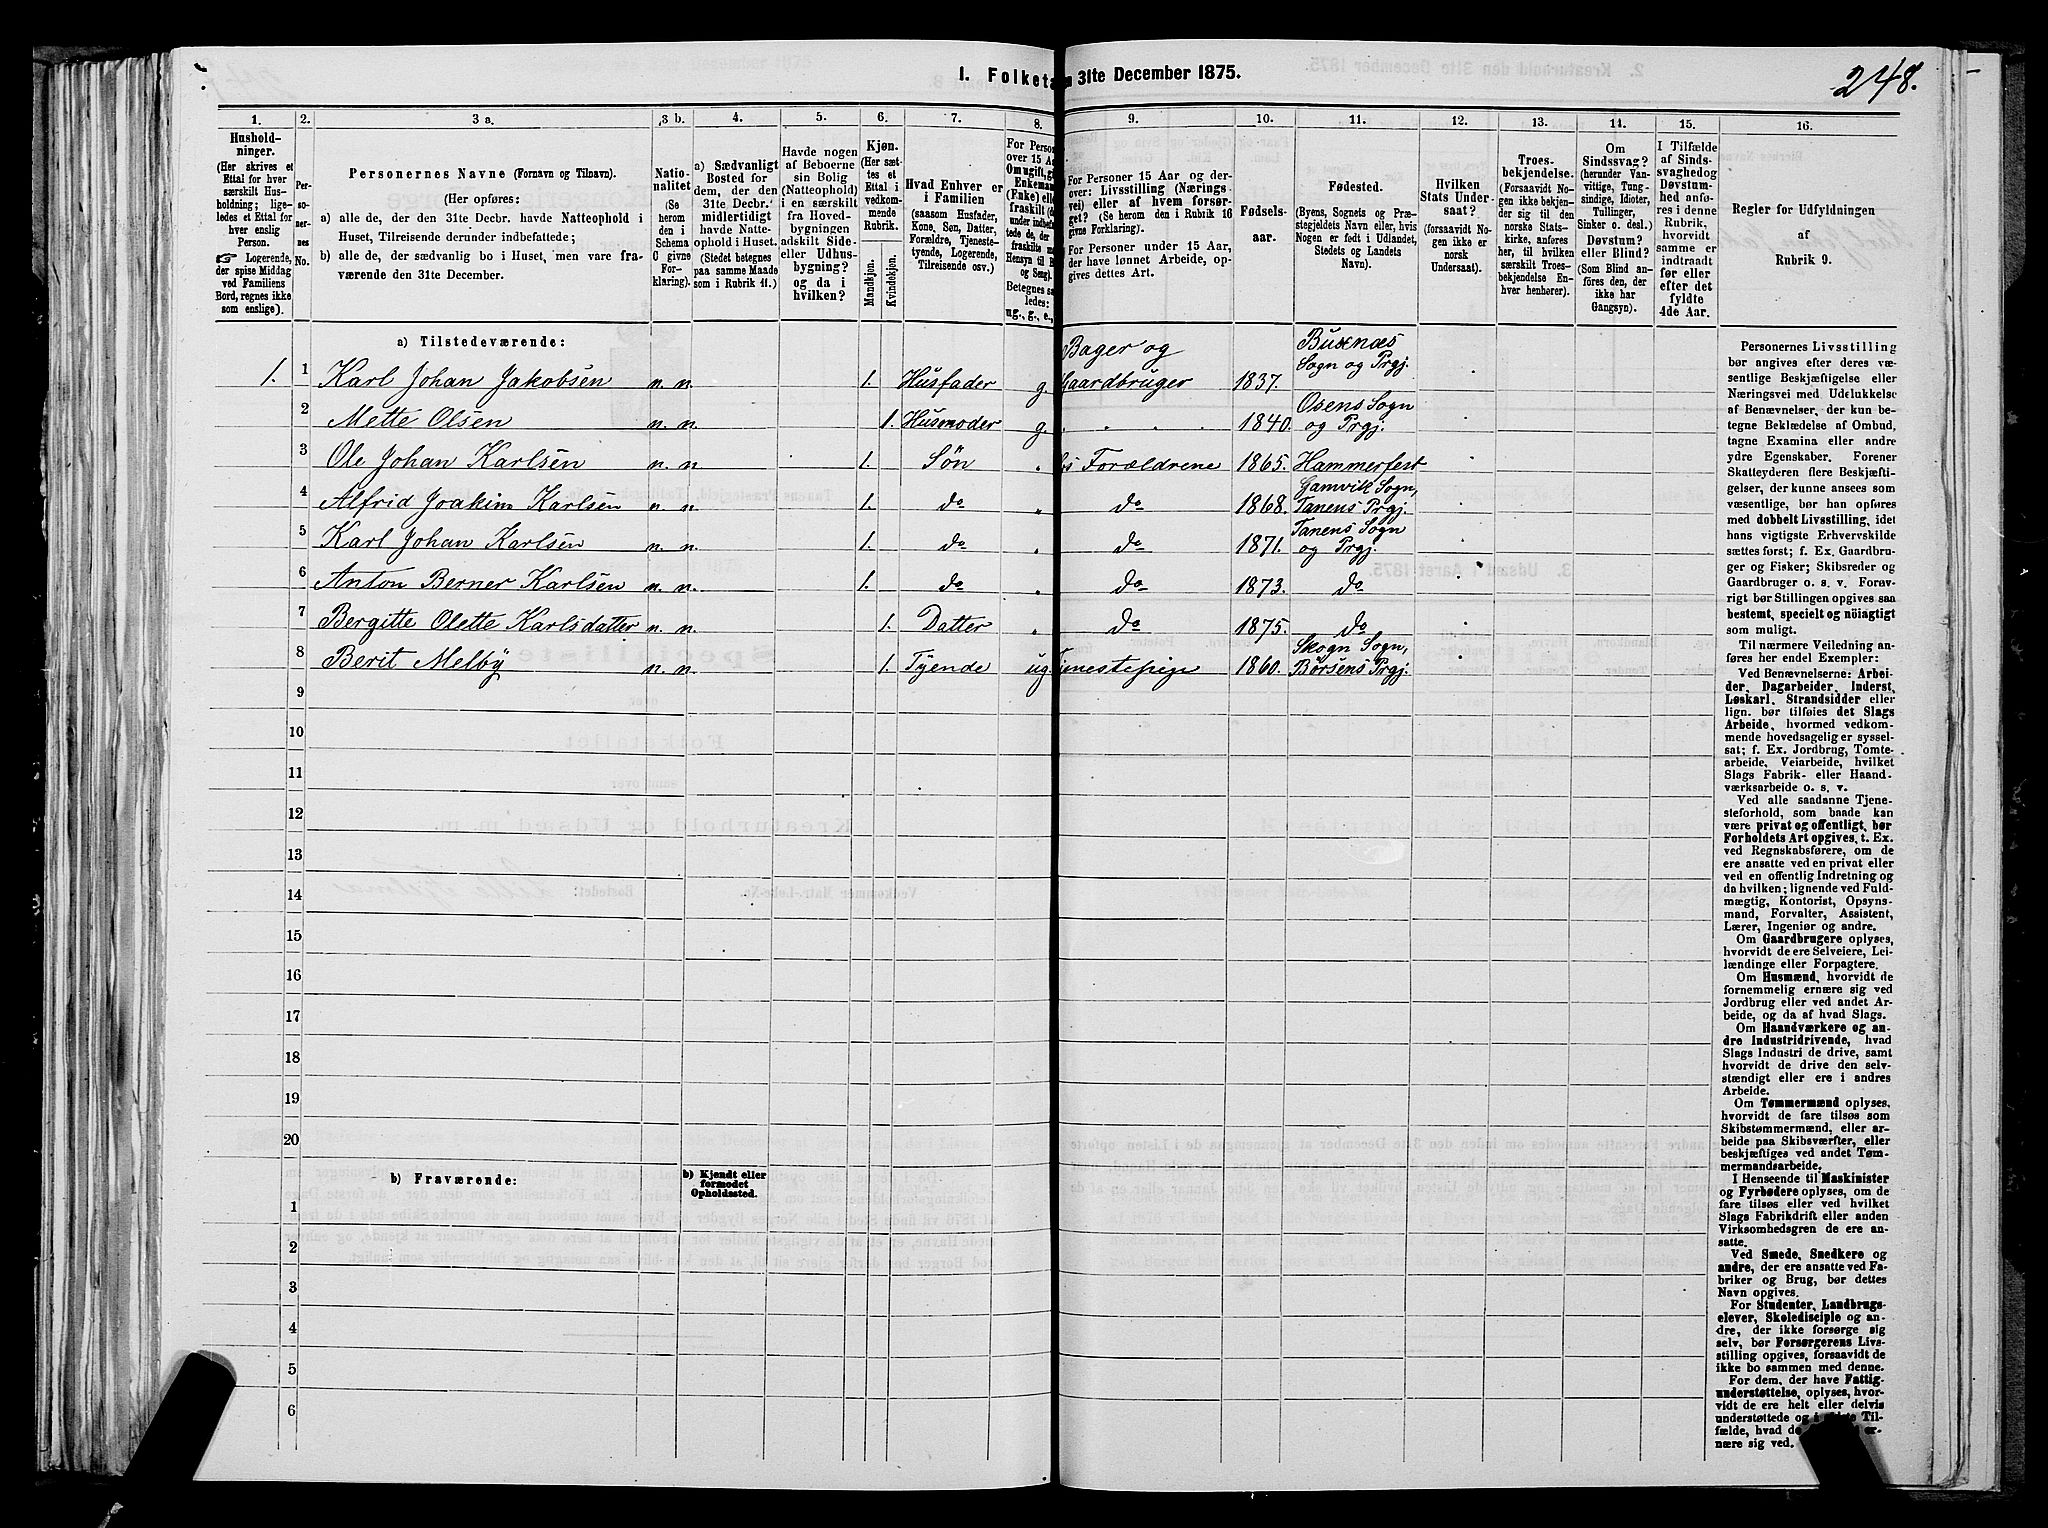 I. Folketa n 31te December 1875.
248.
1. 2. 3 a. 3 b. 4. 5. 6. 7. 8. 9. 10. 11. 12. 13. 14. 15. 16.
Husholdninger.
(Her skrives et
Ettal for hver
særskilt Husholdning;
ligeledes
et Ettal for
hver enslig
Person.
☞ Logerende,
der spise Middag
ved Familiens
Bord, regnes ikke
som enslige).
Personernes
No.
Personernes Navne (Fornavn og Tilnavn).
(Her opføres:
a) alle de, der den 31te Decbr. havde Natteophold i
Huset, Tilreisende derunder indbefattede;
b) alle de, der sædvanlig bo i Huset, men vare fraværende
den 31te December.
Nationalitet
(Se
herom
den i
Schema
C givne
Forklaring).
a) Sædvanligt
Bosted for
dem, der den
31te Decbr.
midlertidigt
havde Natteophold
i Huset.
(Stedet betegnes
paa samme Maade
som i Rubrik 11.)
Havde nogen
af Beboerne
sin Bolig
(Natteophold)
i en særskilt
fra Hovedbygningen
adskilt Sideeller
Udhusbygning?
og da i
hvilken?
Kjøn.
(Her sættes
et
Ettal i
vedkommende
Rubrik.
Mandkjøn.
Kvindekjøn.
Hvad Enhver er
i Familien
(saasom Husfader,
Kone, Søn, Datter,
Forældre, Tjenestetyende,
Logerende,
Tilreisende osv.)
For Personer 15 Aar og derover:
Livsstilling (Næringsvei)
eller af hvem forsørget?
(Se herom den i Rubrik 16
givne Forklaring).
For Personer under 15 Aar,
der have lønnet Arbeide, opgives
dettes Art.
Fødselsaar.
Fødested.
(Byens, Sognets og Præstegjeldets
Navn eller, hvis
Nogen er født i Udlandet,
Stedets og Landets
Navn).
Hvilken
Stats Undersaat?
(forsaavidt Nogen
ikke er
norsk
Undersaat).
Troesbekjendelse.
(Forsaavidt Nogen
ikke bekjender
sig til den
norske Statskirke,
anføres
her, til hvilken
særskilt Troesbekjendelse
Enhver
henhører).
Om
Sindssvag?
(herunder Vanvittige,
Tungsindige,
Idioter,
Tullinger,
Sinker o. desl.)
Døvstum?
eller Blind?
(Som Blind anføres
den, der
ikke har
Gangsyn).
I Tilfælde
af Sindssvaghed
og
Døvstumhed
anføres
i denne
Rubrik,
hvorvidt
samme er
indtraadt
før eller
efter det
fyldte
4de Aar.
Regler for Udfyldningen
af
Rubrik 9.
a) Tilstedeværende:
1. 1 Karl Johan Jakobsen n. n. 1. Husfader g. Bager og Gaardbruger 1837. Busenæs Sogn og Prgj.
2 Mette Olsen n. n. 1. Husmoder g. " " " 1840. Osens Sogn og Prgj.
3 Ole Johan Karlsen n. n. 1. Søn " Forældrene 1865. Hammerfest
4 Alfrid Joakim Karlsen n. n. 1. do " do 1868. Gamvik Sogn, Tanens Prgj.
5 Karl Johan Karlsen n. n. 1. do " do 1871. Tanens Sogn og Prgj.
6 Anton Berner Karlsen n. n. 1. do " do 1873. do
7 Bergitte Olette Karlsdatter n. n. 1. Datter " do 1875. do
8 Berit Melby n. n. 1. Tyende ug. Tjenestepige 1860. Skogn Sogn, Børsens Prgj.
9
10
11
12
13
14
15
16
17
18
19
20
b) Fraværende:
b) Kjendt eller
formodet
Opholdssted.
1
2
3
4
5
6
Personernes Livsstilling
bør angives efter deres væsentlige
Beskjæftigelse eller
Næringsvei med Udelukkelse
af Benævnelser, der kun betegne
Beklædelse af Ombud,
tagne Examina eller andre
ydre Egenskaber. Forener
Skatteyderen flere Beskjæftigelser,
der kunne ansees som
væsentlige, bør han opføres
med dobbelt Livsstilling, idet
hans vigtigste Erhvervskilde
sættes først; f. Ex. Gaardbruger
og Fisker; Skibsreder og
Gaardbruger o. s. v. Foravrigt
bør Stillingen opgives saa
bestemt, specielt og nöiagtigt
som muligt.
Til nærmere Veiledning anføres
her endel Exempler:
Ved Benævnelserne: Arbeider,
Dagarbeider, Inderst,
Løskarl, Strandsidder eller
lign. bør tilføies det Slags
Arbeide, hvormed vedkommende
hovedsagelig er sysselsat;
f. Ex. Jordbrug, Tomtearbeide,
Veiarbeide, hvilket
Slags Fabrik- eller Haandværksarbeide
o. s. v.
Ved alle saadanne Tjenesteforhold,
som baade kan
være privat og offentligt, bør
Forholdets Art opgives, t. Ex.
ved Regnskabsførere, om de
ere ansatte ved en privat eller
ved en offentlig Indretning og
da hvilken; lignende ved Fuldmægtig,
Kontorist, Opsynsmand,
Forvalter, Assistent,
Lærer, Ingeniør og andre.
Om Gaardbrugere oplyses,
hvorvidt de ere Selveiere, Leilændinge
eller Forpagtere.
Om Husmænd, hvorvidt de
fornemmelig ernære sig ved
Jordbrug eller ved andet Arbeide,
og da af hvad Slags.
Om Haandværkere og andre
Industridrivende, hvad
Slags Industri de drive, samt
hvorvidt de drive den selvstændigt
eller ere i andres
Arbeide.
Om Tømmermænd oplyses,
hvorvidt de fare tilsøs som
Skibstømmermænd, eller arbeide
paa Skibsværfter, eller
beskjæftiges ved andet Tømmermandsarbeide.
I Henseende til Maskinister
og Fyrbødere oplyses, om de
fare tilsøs eller ved hvilket
Slags Fabrikdrift eller anden
Virksomhedsgren de ere ansatte.
Ved Smede, Snedkere og
andre, der ere ansatte ved Fabriker
og Brug, bør dettes
Navn opgives.
For Studenter, Landbrugselever,
Skoledisciple og andre,
der ikke forsørge sig
selv, bør Forsørgerens Livsstilling
opgives, forsaavidt de
ikke bo sammen med denne.
For dem, der have Fattigunderstøttelse,
oplyses, hvorvidt
de ere helt eller delvis
understøttede og i Tilfælde,
hvad de
nære sig ved.